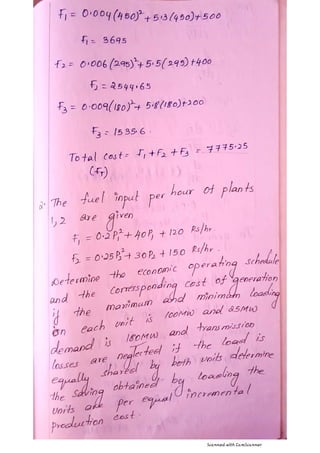 F1 = 0.004(450)² + 5.3(450)+500
F1 = 3695
F2 = 0.006(295)²+5.5(295)+400
F2 = 2544.65
F3 = 0.009(180)²+ 5.8(180)+200
F3 = 1535.6
Total cost = F1 + F2 + F3 = 7775.25
(FT)
The fuel input per hour of plants
1,2 are given
F1 = 0.2P1² + 40P1 + 120 Rs/hr
F2 = 0.25P2² + 30P2 + 150 Rs/hr.
Determine the economic operating schedule
and the corresponding cost of generation
if the maximum and minimum loading
on each unit is 100MW and 25MW
demand is 180MW and transmission
losses are neglected if the load is
equally shared by both units determine
the saving obtained by loading the
units as per equal incremental
production cost.
Scanned with CamScanner